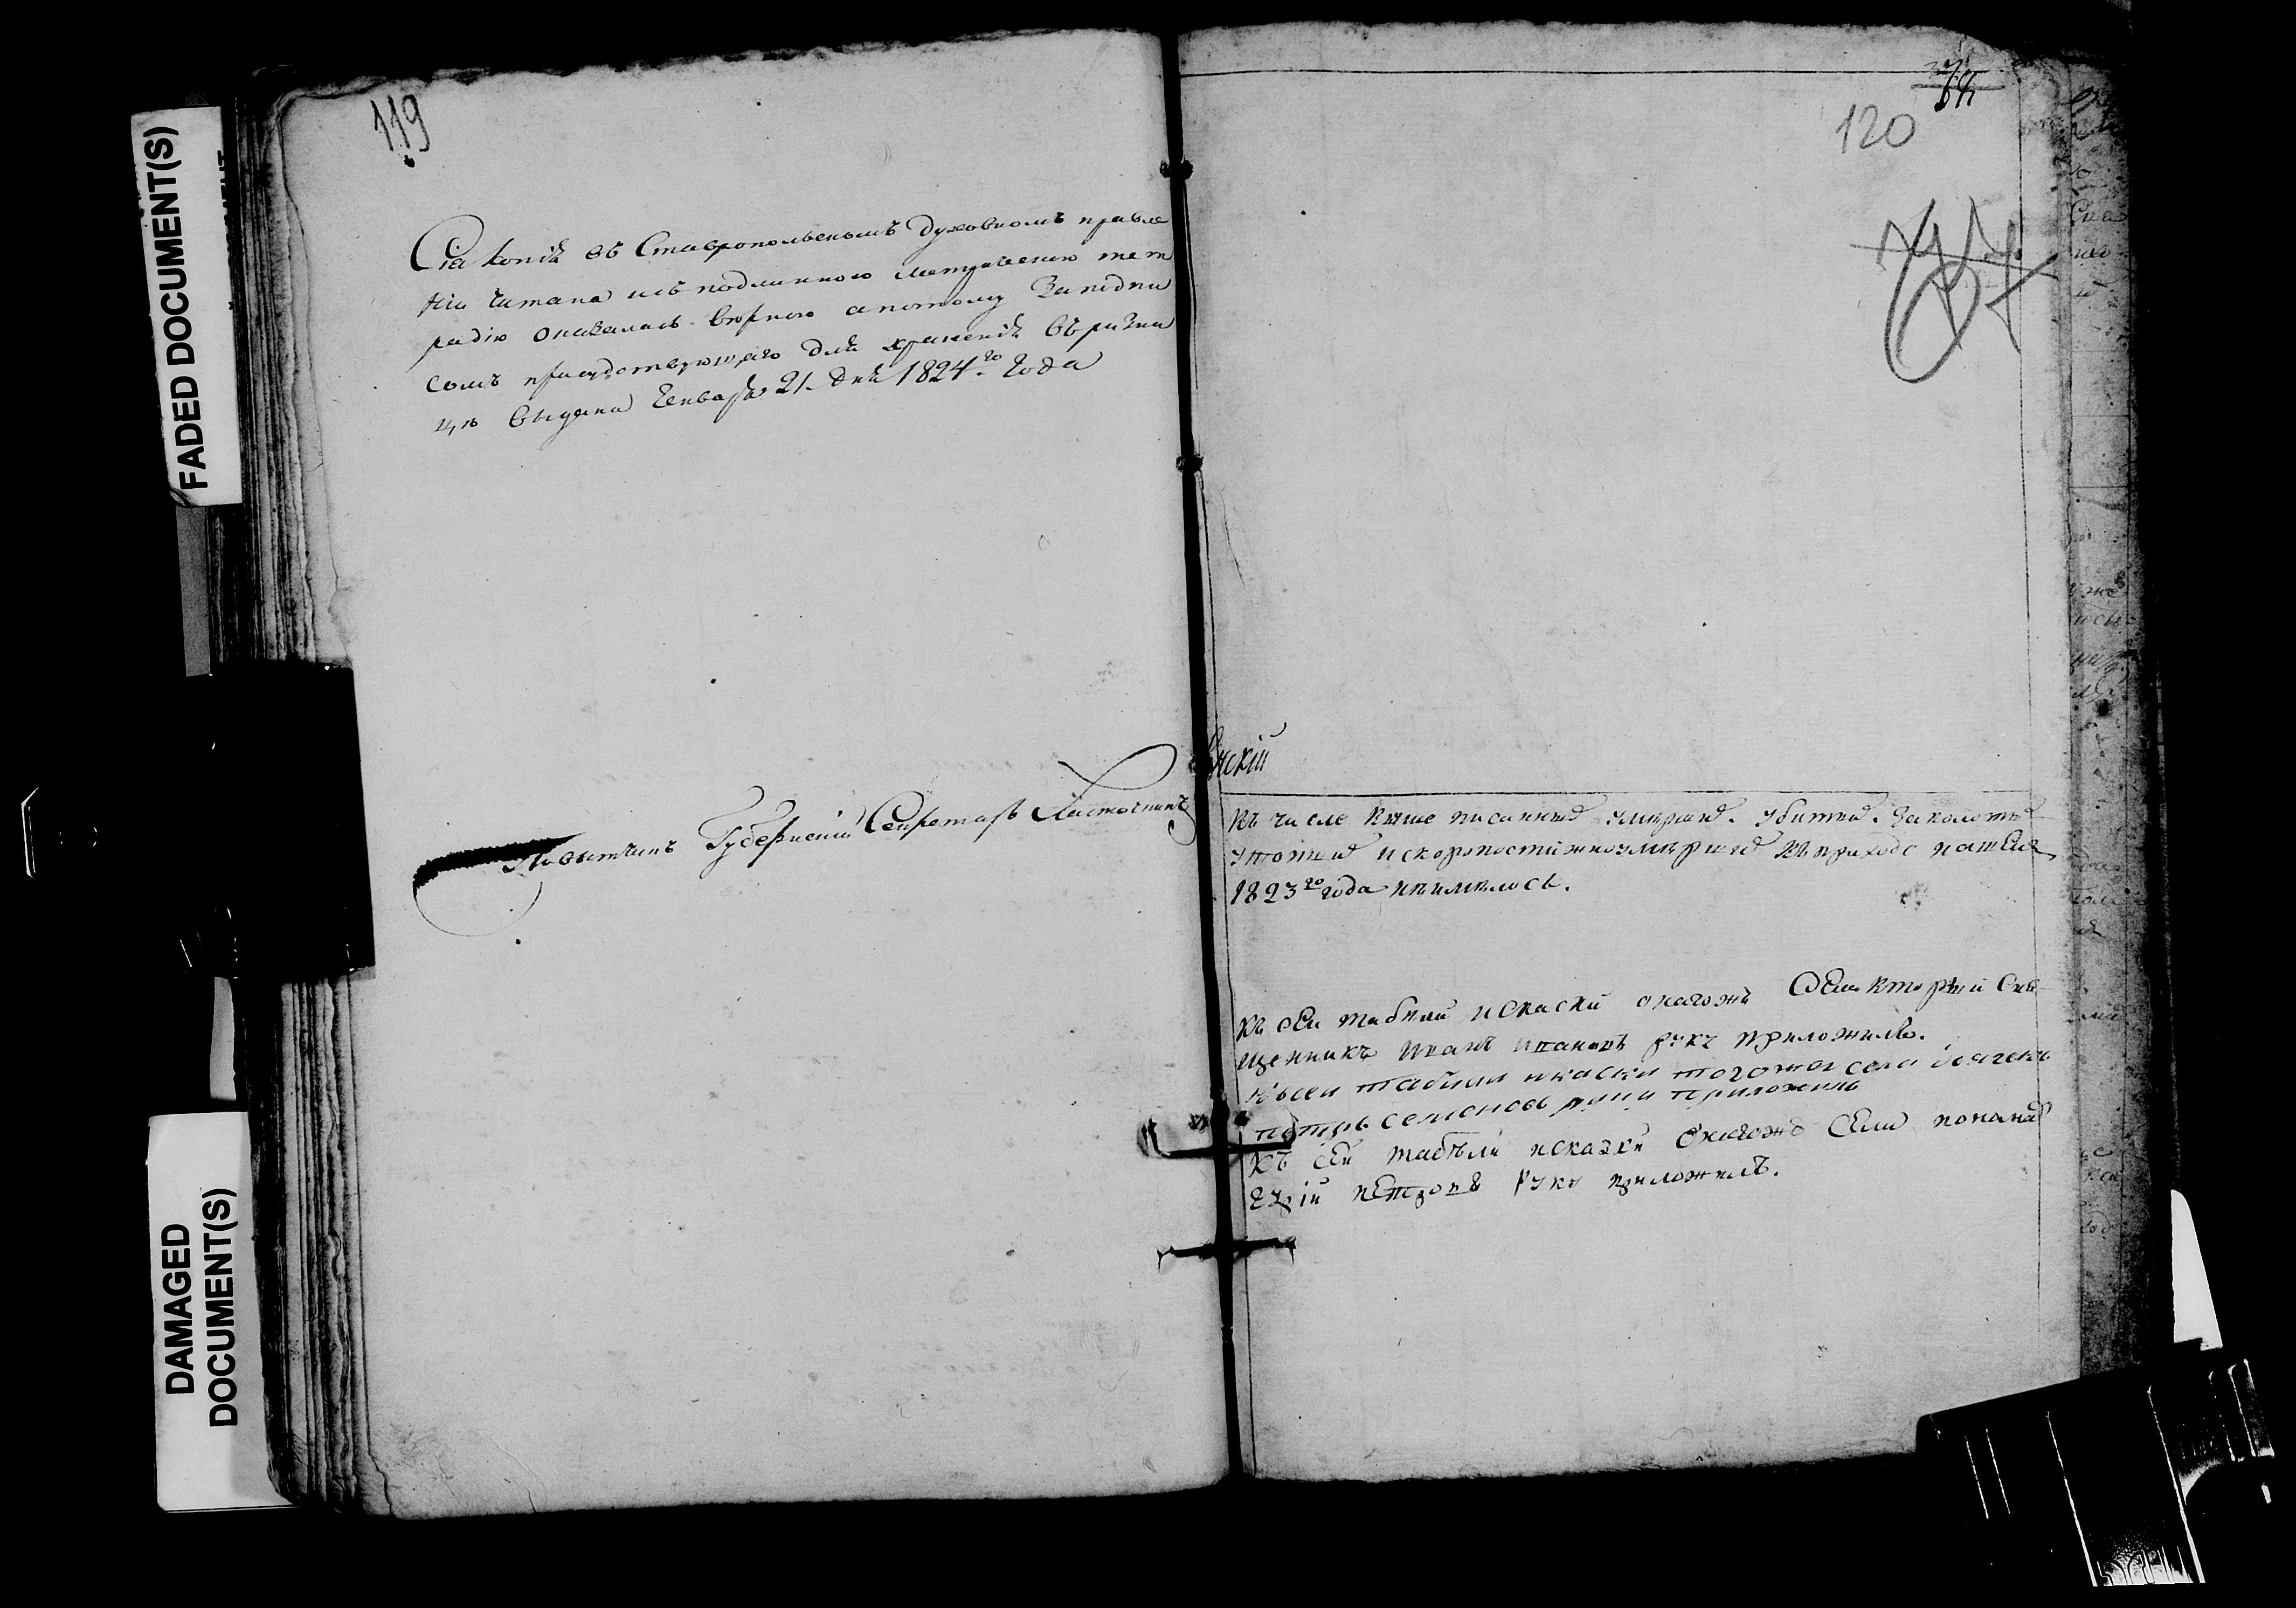 FADED DOCUMENT(S)
DAMAGED
DOCUMENT(S)
119
Сія копія въ Ставропольскомъ духовномъ правле
ніи читана и съ подлинною метрическою тет
радію оказалась вѣрною а потому за підпи
сомъ присудствующаго для храненія въ ризни
цѣ выдана Генваря 21. дня 1824.го года
Повытчикъ Губернскій Секретарь Ласточкинъ
120
нскій
Въ числе выше писанныхъ умершихъ. убитых. заколотых
утопшихъ и скоропостижно умершихъ въ приходе нашем
1823го года неимелось.
Къ сеи табели и скаски онагожъ села вторыи Свя
щенникъ Иванъ Ивановъ руку приложилъ.
Къ сеи табели искаски тогожъ села дьячекъ
петръ семеновъ руку приложилъ
Къ сеи табѣли исказки онагожъ села понамарь
петровъ руку приложилъ.